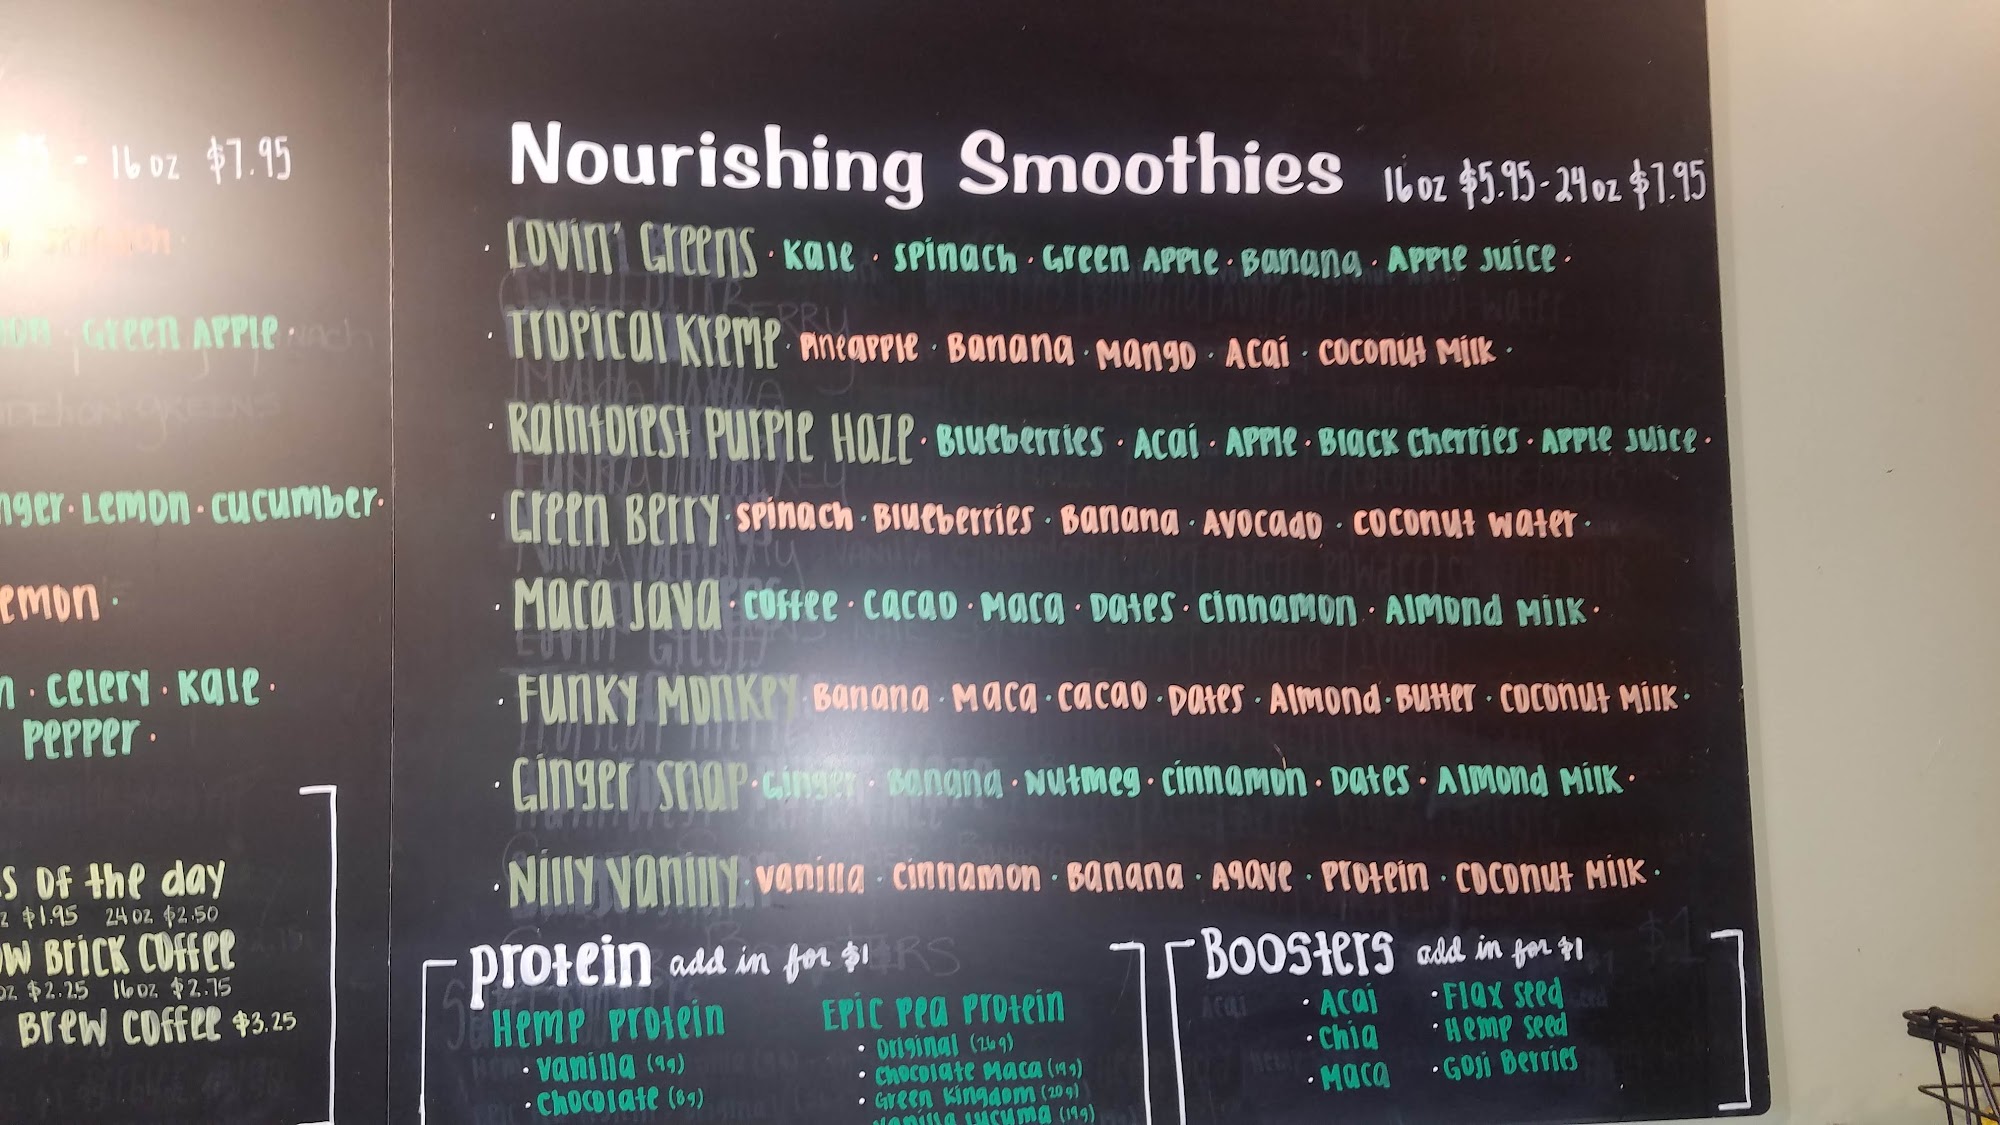 - 16 oz $7.95
Green Apple ·
Lemon · Cucumber ·
· Celery · Kale ·
Pepper ·
of the day
$1.95 24 oz $2.50
Brick Coffee
$2.25 16 oz $2.75
Brew Coffee $3.25
Nourishing Smoothies 16 oz $5.95 - 24 oz $7.95
· Lovin' Greens · Kale · Spinach · Green Apple · Banana · Apple Juice ·
· Tropical Kreme · Pineapple · Banana · Mango · Acai · Coconut Milk ·
· Rainforest Purple Haze · Blueberries · Acai · Apple · Black Cherries · Apple Juice ·
· Green Berry · Spinach · Blueberries · Banana · Avocado · Coconut Water ·
· Maca Java · Coffee · Cacao · Maca · Dates · Cinnamon · Almond Milk ·
· Funky Monkey · Banana · Maca · Cacao · Dates · Almond Butter · Coconut Milk ·
· Ginger Snap · Ginger · Banana · Nutmeg · Cinnamon · Dates · Almond Milk ·
· Nilly Vanilly · Vanilla · Cinnamon · Banana · Agave · Protein · Coconut Milk ·
Protein add in for $1
Hemp Protein
· Vanilla (9g)
· Chocolate (8g)
Epic Pea Protein
· Original (26g)
· Chocolate Maca (19g)
· Green Kingdom (20g)
Vanilla Lucuma (19g)
Boosters add in for $1
· Acai
· Chia
· Maca
· Flax Seed
· Hemp Seed
· Goji Berries